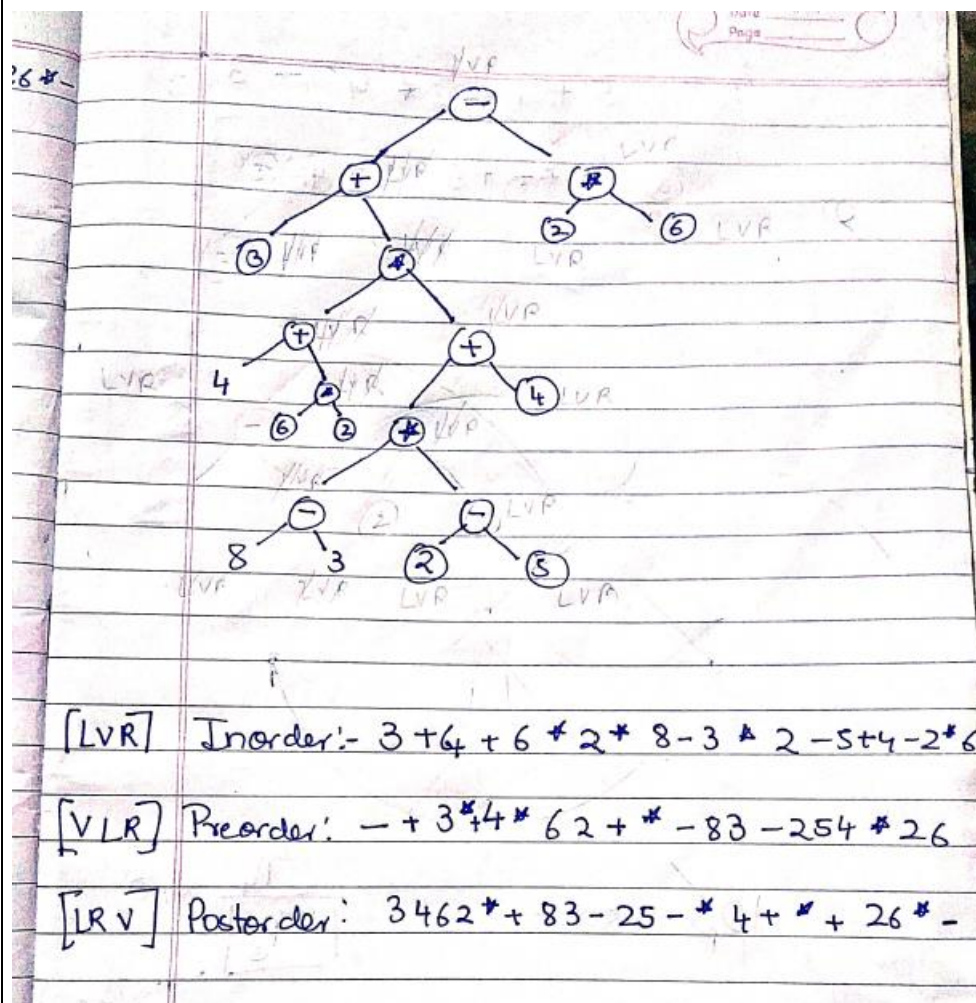 Date
Page
26 * -
LVR
-
+ LVR * LVR
3 LVR * LVR 2 6 LVR
LVR
+ LVR + LVR
LVR 4 * LVR 4 LVR
6 2 * LVR
LVR
- 2 - LVR
8 3 2 5
LVR LVR LVR LVR
[LVR] Inorder:- 3 + 4 + 6 * 2 * 8 - 3 * 2 - 5 + 4 - 2 * 6
[VLR] Preorder: - + 3 * + 4 * 6 2 + * - 8 3 - 2 5 4 * 2 6
[LRV] Postorder: 3 4 6 2 * + 8 3 - 2 5 - * 4 + * + 2 6 * -